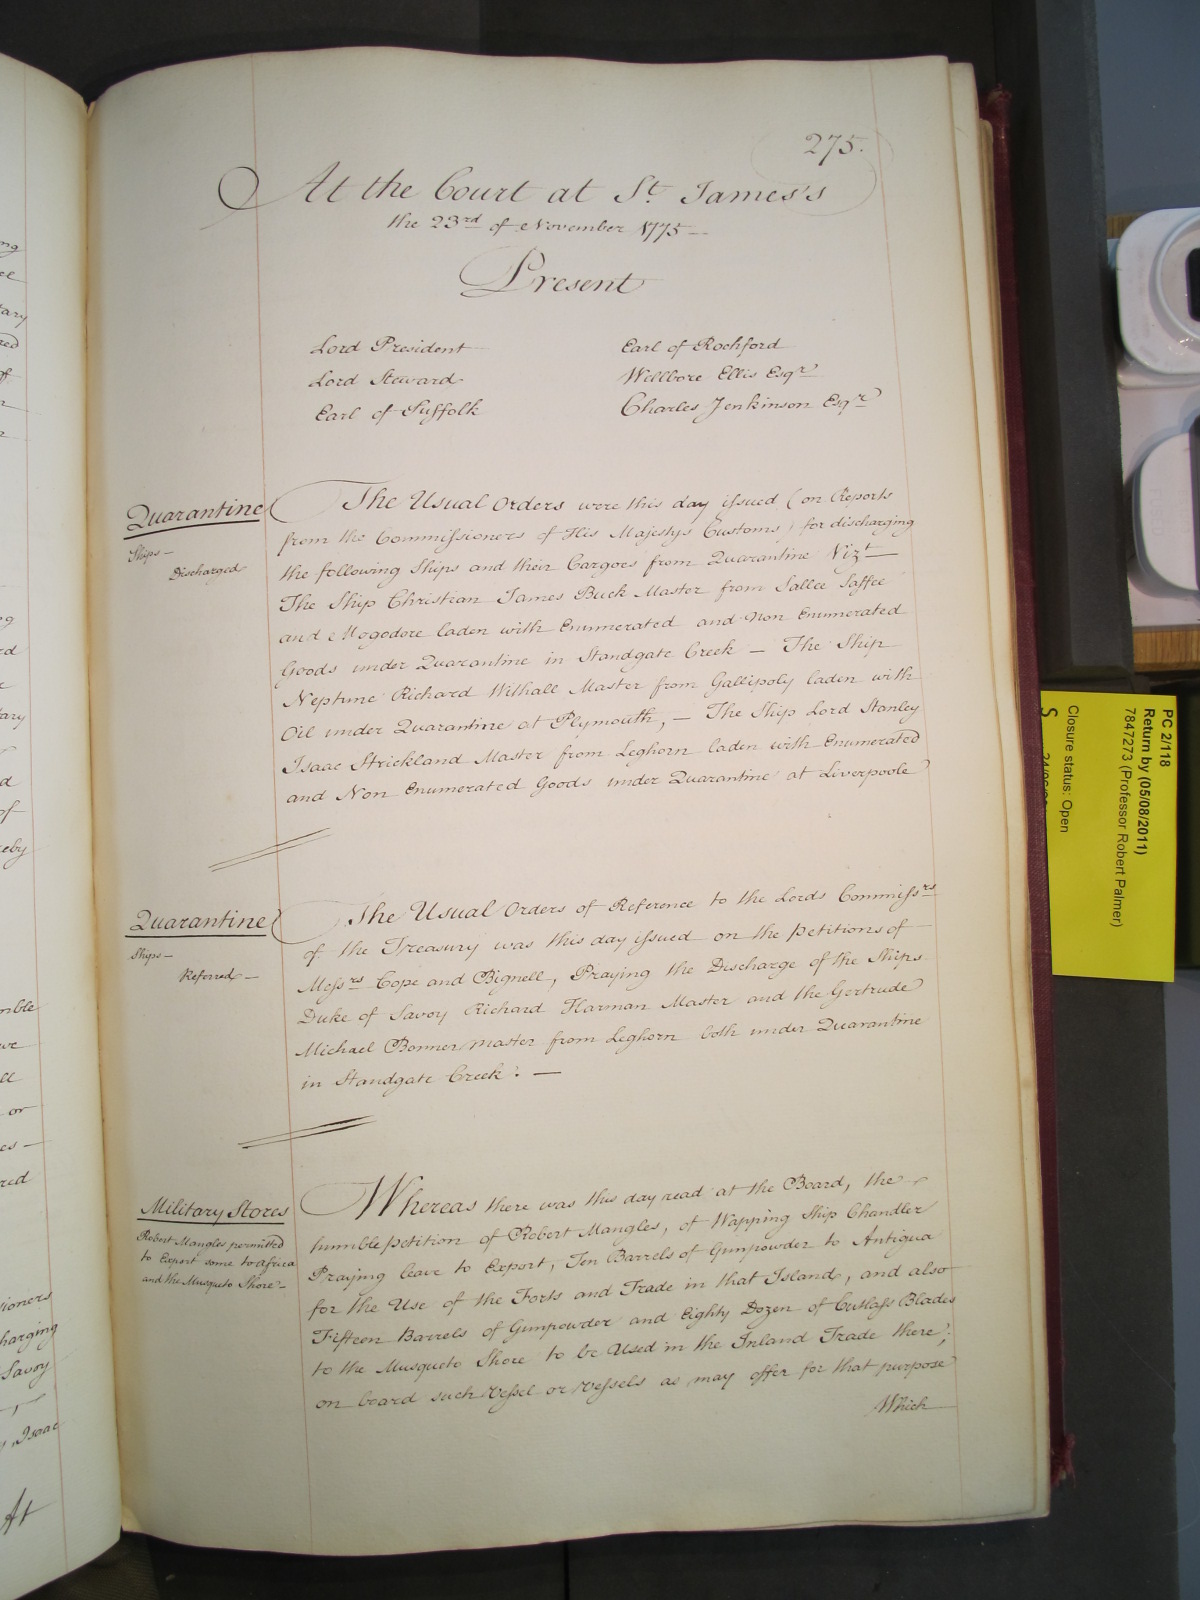 275.
At the Court at St. James's
the 23rd of November 1775
Present
Lord President
Lord Steward
Earl of Suffolk
Earl of Rochford
Wellbore Ellis Esqr
Charles Jenkinson Esqr
Quarantine
Ships
Discharged
The Usual Orders were this day issued (on Reports
from the Commissioners of His Majestys Customs) for discharging
the following Ships and their Cargoes from Quarantine Vizt
The Ship Christian James Buck Master from Sallee Saffee
and Mogodore laden with Enumerated and Non Enumerated
Goods under Quarantine in Standgate Creek — The Ship
Neptune Richard Withall Master from Gallipoly laden with
Oil under Quarantine at Plymouth, — The Ship Lord Stanley
Isaac Strickland Master from Leghorn laden with Enumerated
and Non Enumerated Goods under Quarantine at Liverpoole
Quarantine
Ships—
Referred—
The Usual Orders of Reference to the Lords Commissrs
of the Treasury was this day issued on the Petitions of
Messrs Cope and Bignell, Praying the Discharge of the Ships
Duke of Savoy Richard Harman Master and the Gertrude
Michael Bonner Master from Leghorn both under Quarantine
in Standgate Creek: —
Military Stores
Robert Mangles permitted
to Export some to Africa
and the Musqueto Shore—
Whereas there was this day read at the Board, the
humble Petition of Robert Mangles, of Wapping Ship Chandler
Praying leave to Export, Ten Barrels of Gunpowder to Antigua
for the Use of the Forts and Trade in that Island, and also
Fifteen Barrels of Gunpowder and Eighty Dozen of Cutlass Blades
to the Musqueto Shore to be Used in the Inland Trade there;
on board such Vessel or Vessels as may offer for that purpose
Which
PC 2/118
Return by (05/08/2011)
7847273 (Professor Robert Palmer)
Closure status: Open
S
ng
tary
red
ff
rd
tary
d
of
reby
mble
we
ll
or
es—
red
sioners
harging
Savoy
Isaac
At